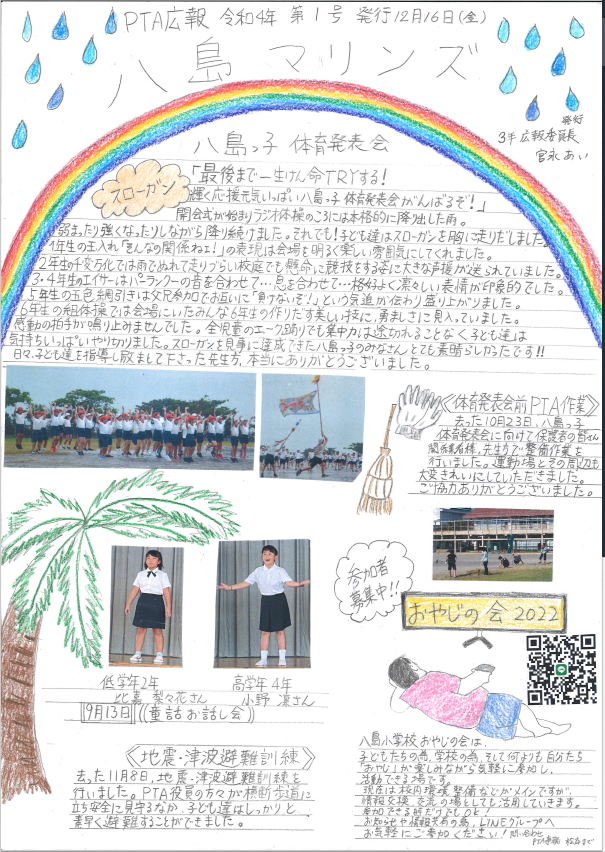 PTA広報 令和4年 第1号 発行12月16日(金)
八島マリンズ
発行
3年 広報委員長
宮永 あい
八島っ子 体育発表会
スローガン
「最後まで一生けん命TRYする!
輝く応援元気いっぱい八島っ子 体育発表会がんばるぞ!」
開会式が始まりラジオ体操のころには本格的に降り出した雨。
弱まったり強くなったりしながら降り続けました。それでも!子ども達はスローガンを胸に走りだしました。
1年生の玉入れ「きんなの関係ねェ!」の表現は会場を明るく楽しい雰囲気にしてくれました。
2年生の千変万化では雨でぬれて走りづらい校庭でも懸命に競技をする姿に大きな声援が送られていました。
3・4年生のエイサーはパーランクーの音を合わせて…息を合わせて…格好よく凛々しい表情が印象的でした。
5年生の五色綱引きは父兄参加でお互いに「負けないぞ!」という気迫が伝わり盛り上がりました。
6年生の組体操では会場にいたみんな6年生の作りだす美しい技に、勇ましさに見入っていました。
感動の拍手が鳴り止みませんでした。全児童のエーク踊りでも集中力は途切れることなく子ども達は
気持ちいっぱいやり切りました。スローガンを見事に達成できた八島っ子のみなさんとても素晴らしかったです!!
日々子ども達を指導し励まして下さった先生方、本当にありがとうございました。
《体育発表会前PTA作業》
去った10月23日、八島っ子
体育発表会に向けて保護者の皆さん
関係業者様、先生方で整備作業を
行いました。運動場とその周辺も
大変きれいにしていただきました。
ご協力ありがとうございました。
参加者
募集中!!
おやじの会 2022
低学年2年
比嘉 梨々花さん
高学年4年
小野 凜さん
9月13日 ((童話お話し会))
《地震・津波避難訓練》
去った11月8日、地震・津波避難訓練を
行いました。PTA役員の方々が横断歩道に
立ち安全に見守るなか、子ども達はしっかりと
素早く避難することができました。
八島小学校おやじの会は、
子どもたちの為、学校の為、そして何よりも自分たち
「おやじ」が楽しみながら気軽に参加し、
活動できる場です。
現在は校内環境整備などがメインですが、
情報交換、交流の場としても活用していきます。
参加できる時だけでもOKと!
お知らせや情報共有の為、LINEグループへ
お気軽にご参加ください! 問い合わせ
PTA事務 松森まで